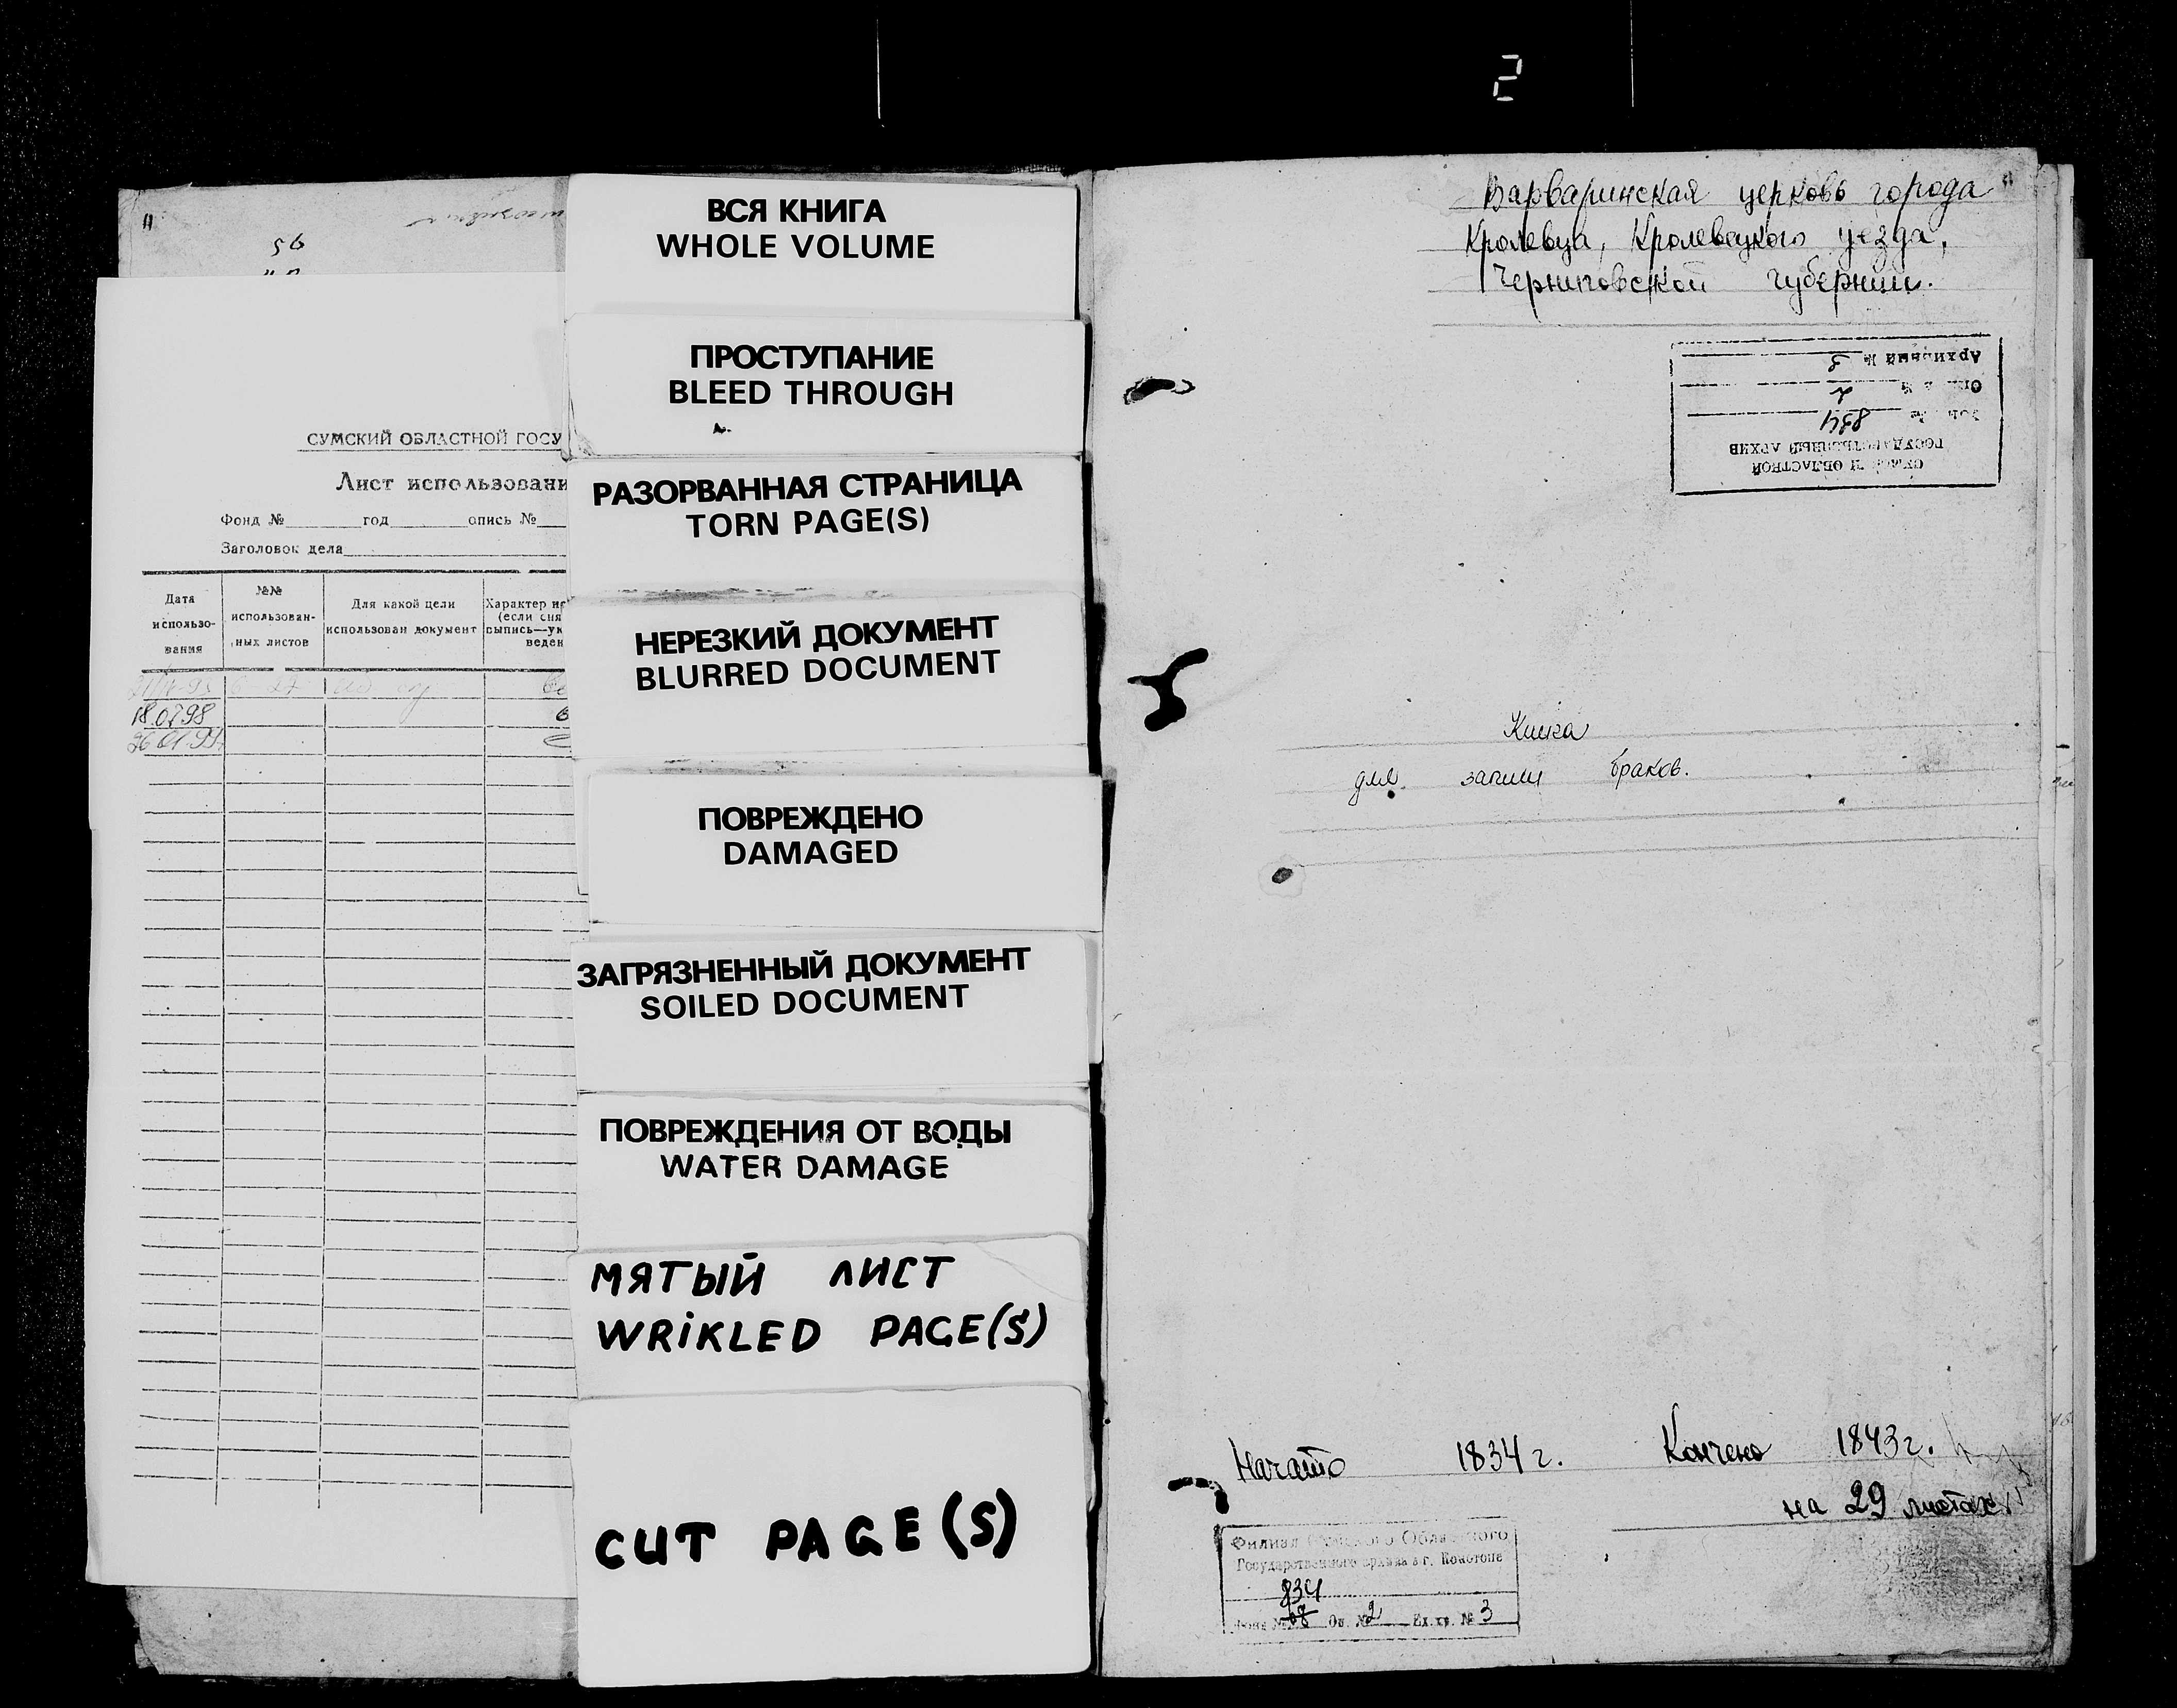 2
95
СУМСКИЙ ОБЛАСТНОЙ ГОСУ
Лист использовани
Фонд № год опись №
Заголовок дела
Дата использо-вания
№№ использован-ных листов
Для какой цели использован документ
Характер ис (если сня выпись—ук веден
18.07.98
26.01.99
ВСЯ КНИГА
WHOLE VOLUME
ПРОСТУПАНИЕ
BLEED THROUGH
РАЗОРВАННАЯ СТРАНИЦА
TORN PAGE(S)
НЕРЕЗКИЙ ДОКУМЕНТ
BLURRED DOCUMENT
ПОВРЕЖДЕНО
DAMAGED
ЗАГРЯЗНЕННЫЙ ДОКУМЕНТ
SOILED DOCUMENT
ПОВРЕЖДЕНИЯ ОТ ВОДЫ
WATER DAMAGE
МЯТЫЙ ЛИСТ
WRIKLED PAGE(S)
CUT PAGE(S)
Варваринская церковь города
Кролевца, Кролевецкого уезда,
Черниговской губернии.
СУМСКИЙ ОБЛАСТНОЙ
ГОСУДАРСТВЕННЫЙ АРХИВ
Фонд № 834
Опись № 2
Архивный № 3
Книга
для записи браков.
Начато 1834 г. Кончено 1843 г.
на 29 листах
Филиал Сумского Областного
Государственного архива в г. Конотопе
834
Фонд № 08 Оп. № 2 Ед. хр. № 3